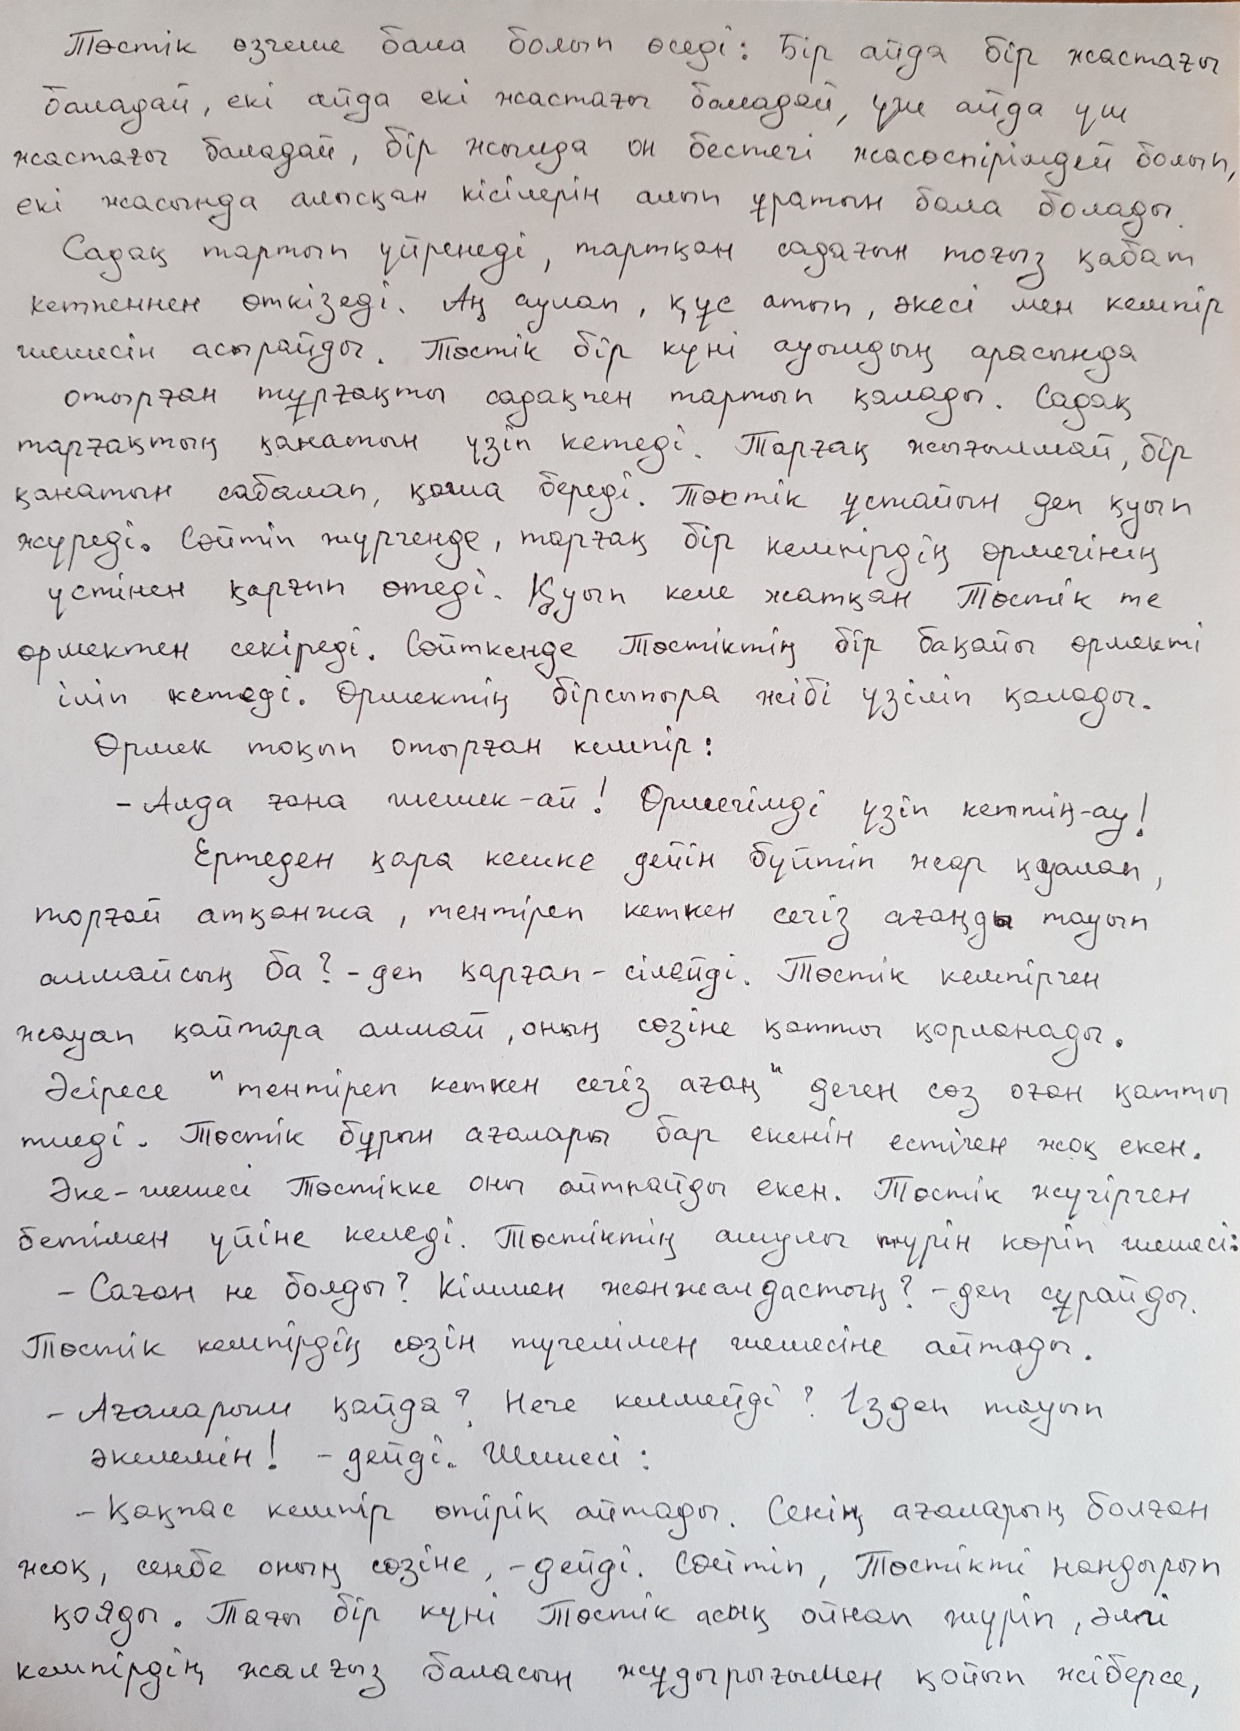 Төстік өзгеше бала болып өседі: Бір айда бір жастағы
баладай, екі айда екі жастағы баладай, үш айда үш
жастағы баладай, бір жылда он бестегі жасөспірімдей болып,
екі жасында алысқан кісілерін алып ұратын бала болады.
Садақ тартып үйренеді, тартқан садағын тоғыз қабат
кетпеннен өткізеді. Аң аулап, құс атып, әкесі мен кемпір
шешесін асырайды. Төстік бір күні ауылдың арасында
отырған тұрғақты садақпен тартып қалады. Садақ
тарғақтың қанатын үзіп кетеді. Тарғақ жығылмай, бір
қанатын сабалап, қаша береді. Төстік ұстайын деп қуып
жүреді. Сөйтіп жүргенде, тарғақ бір кемпірдің өрмегінің
үстінен қарғып өтеді. Қуып келе жатқан Төстік те
өрмектен секіреді. Сөйткенде Төстіктің бір бақайы өрмекті
іліп кетеді. Өрмектің бірсыпыра жібі үзіліп қалады.
Өрмек тоқып отырған кемпір:
- Алда ғана шешек-ай! Өрмегімді үзіп кеттің-ау!
Ертеден қара кешке дейін бүйтіп жар қдалап,
торғай атқанша, тентіреп кеткен сегіз ағаңды тауып
алмайсың ба? - деп қарғап-сілейді. Төстік кемпірген
жауап қайтара алмай, оның сөзіне қатты қорланады.
Әсіресе "тентіреп кеткен сегіз ағаң" деген сөз оған қатты
тиеді. Төстік бұрын ағалары бар екенін естіген жоқ екен.
Әке-шешесі Төстікке оны айтпайды екен. Төстік жүгірген
бетімен үйіне келеді. Төстіктің ашулы түрін көріп шешесі:
- Саған не болды? Кіммен жанжалдастың? - деп сұрайды.
Төстік кемпірдің сөзін түгелімен шешесіне айтады.
- Ағаларым қайда? Неге келмейді? Іздеп тауып
әкелемін! - дейді. Шешесі:
- Қақпас кемпір өтірік айтады. Сенің ағаларың болған
жоқ, сенбе оның сөзіне, - дейді. Сөйтіп, Төстікті нандырып
қояды. Тағы бір күні Төстік асық ойнап жүріп, әлгі
кемпірдің жалғыз баласын жұдырығымен қойып жіберсе,